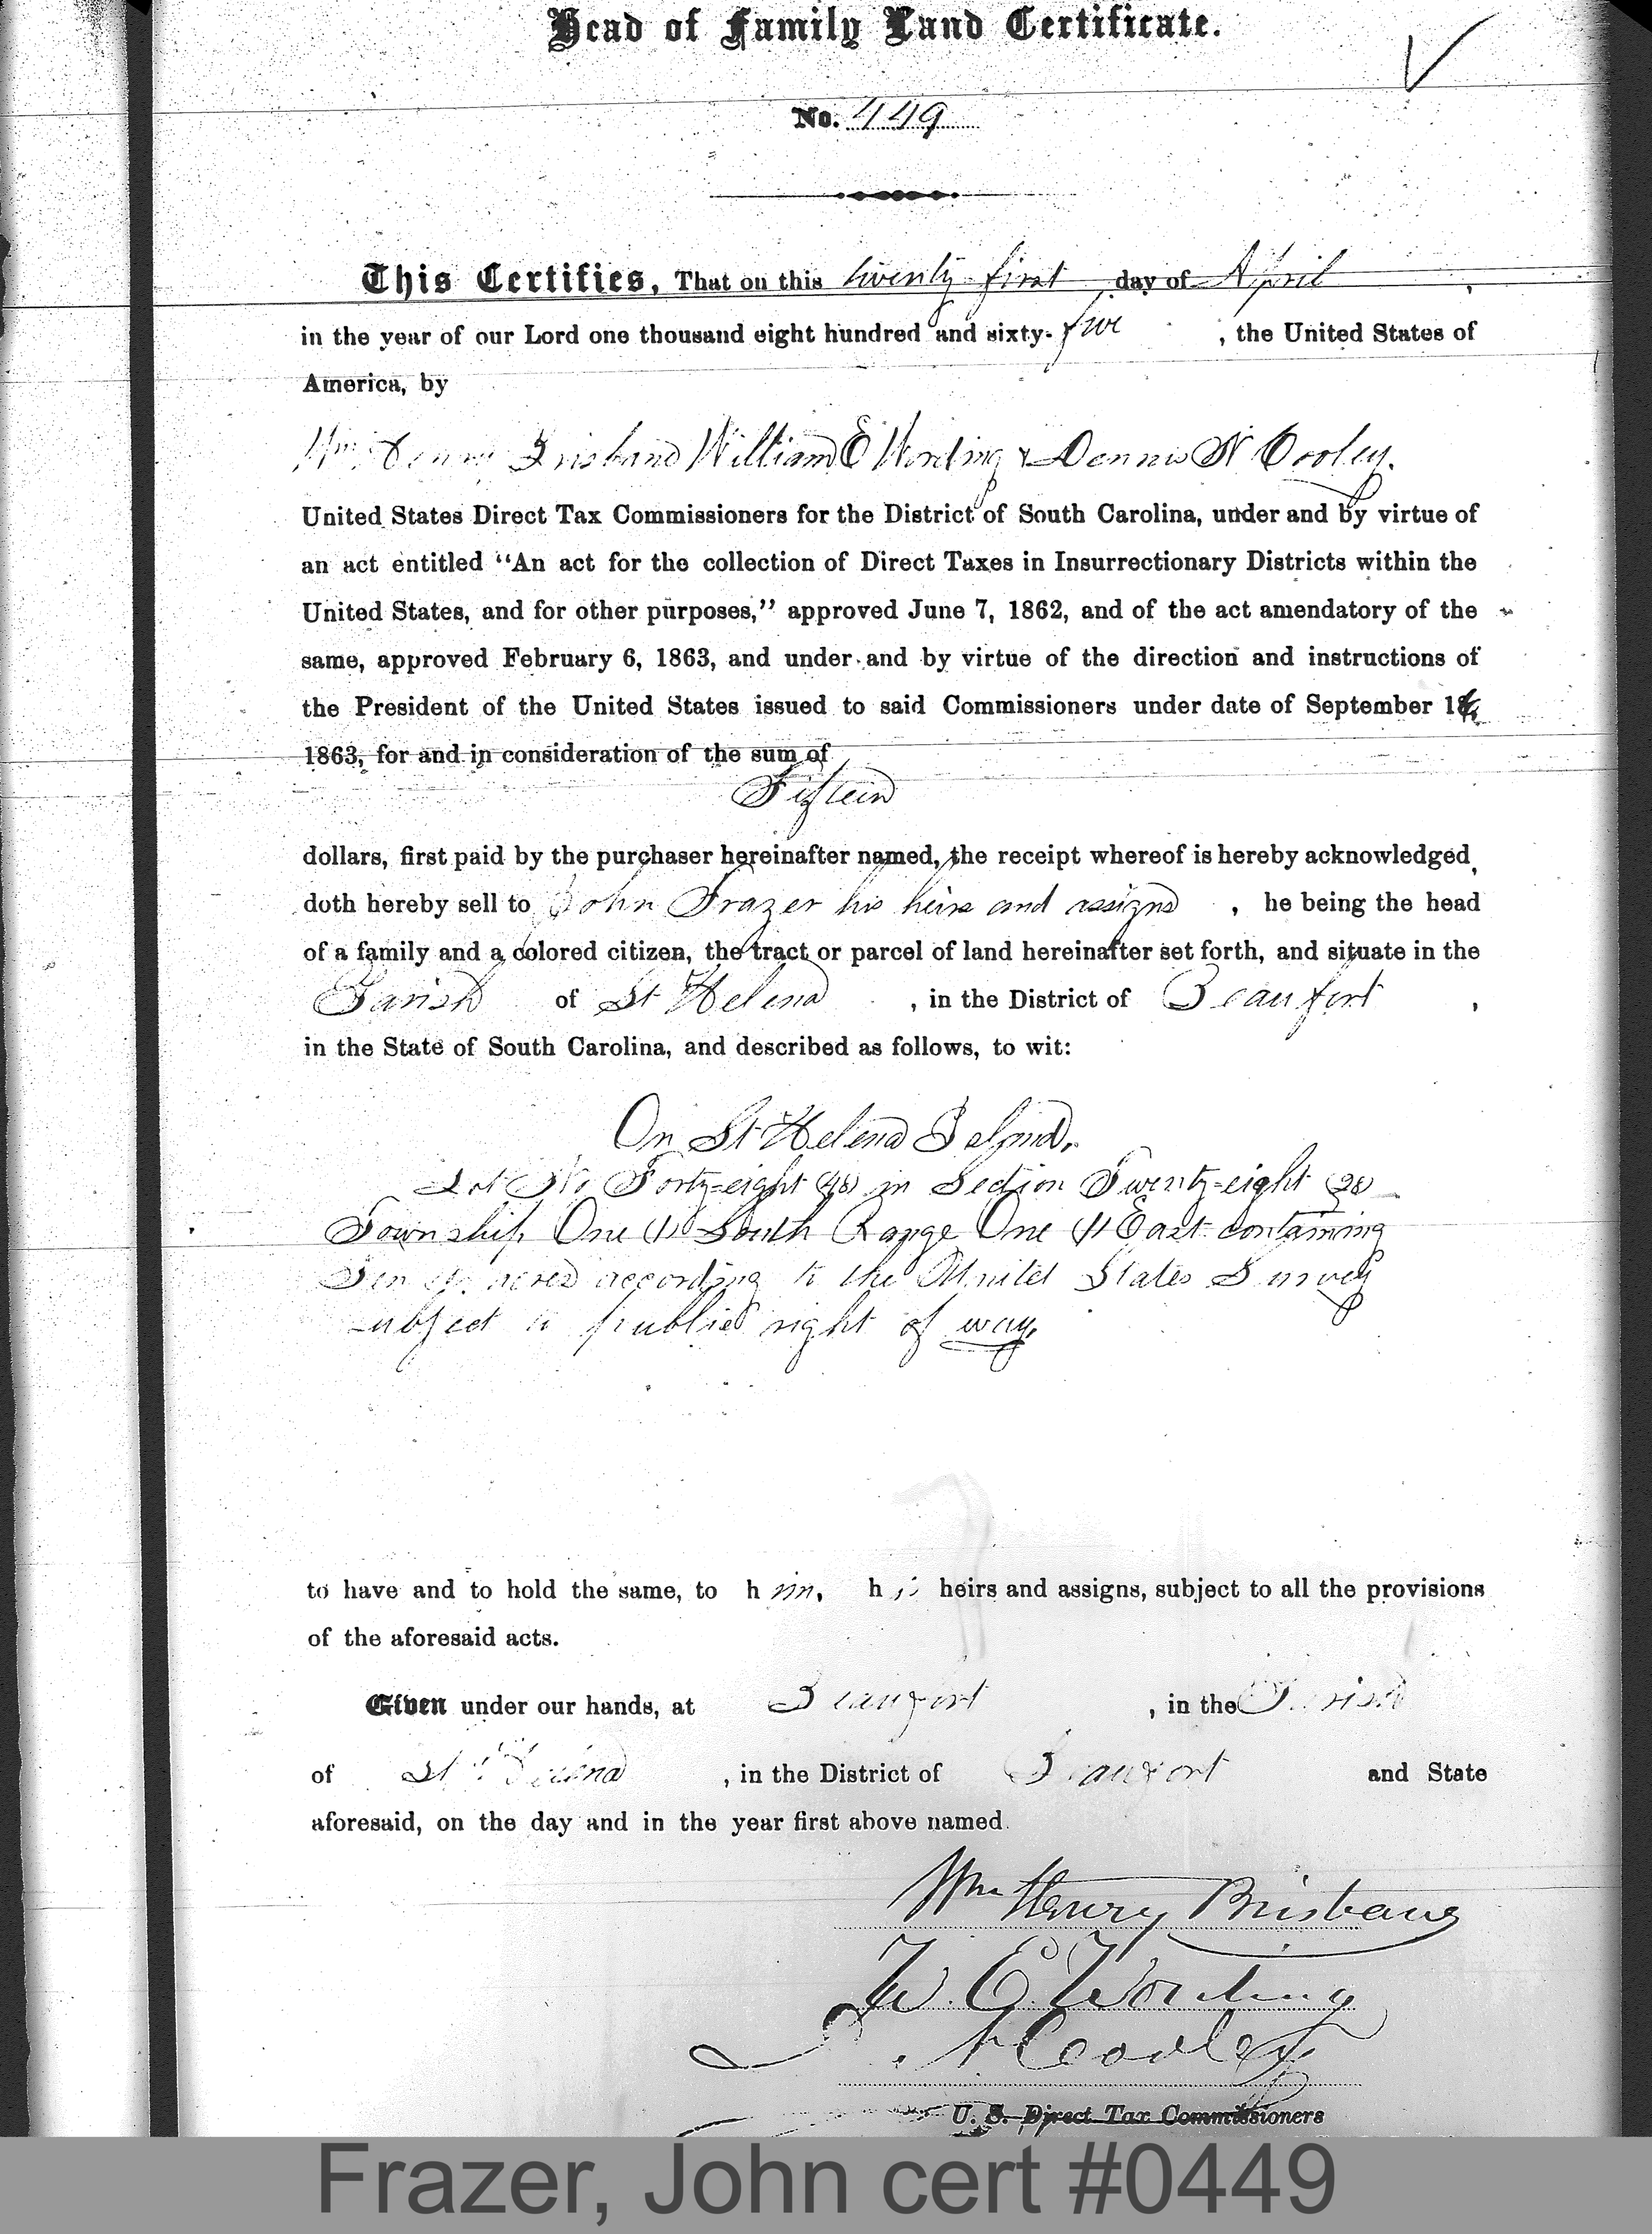 Head of Family Land Certificate.
No. 449
This Certifies, That on this twenty-first day of April,
in the year of our Lord one thousand eight hundred and sixty-five, the United States of
America, by
Wm. Henry Brisband William E Wording & Dennis N Cooley.
United States Direct Tax Commissioners for the District of South Carolina, under and by virtue of
an act entitled “An act for the collection of Direct Taxes in Insurrectionary Districts within the
United States, and for other purposes,” approved June 7, 1862, and of the act amendatory of the
same, approved February 6, 1863, and under and by virtue of the direction and instructions of
the President of the United States issued to said Commissioners under date of September
1863, for and in consideration of the sum of
Fifteen
dollars, first paid by the purchaser hereinafter named, the receipt whereof is hereby acknowledged,
doth hereby sell to John Frazer his heirs and assigns, he being the head
of a family and a colored citizen, the tract or parcel of land hereinafter set forth, and situate in the
Parish of St Helena, in the District of Beaufort,
in the State of South Carolina, and described as follows, to wit:
On St Helena Island.
Lot No Forty-eight (48) in Section Twenty-eight (28)
Township One (1) South Range One (1) East containing
Ten acres according to the United States Survey
subject to public right of way.
to have and to hold the same, to him, his heirs and assigns, subject to all the provisions
of the aforesaid acts.
Given under our hands, at Beaufort, in the Parish
of St Helena, in the District of Beaufort and State
aforesaid, on the day and in the year first above named.
Wm Henry Brisbane
W. E. Wording
D. N Cooley
U. S. Direct Tax Commissioners
Frazer, John cert #0449